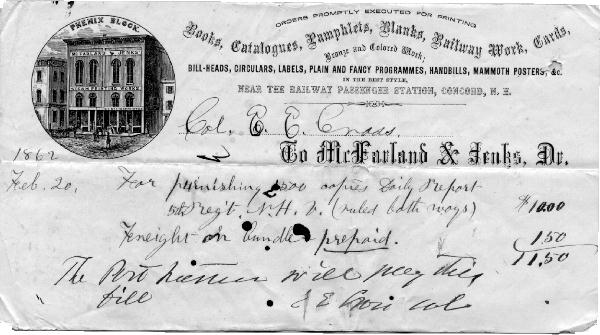 ORDERS PROMPTLY EXECUTED FOR PRINTING
Books, Catalogues, Pamphlets, Blanks, Railway Work, Cards,
Bronze and Colored Work;
BILL-HEADS, CIRCULARS, LABELS, PLAIN AND FANCY PROGRAMMES, HANDBILLS, MAMMOTH POSTERS, &c.
IN THE BEST STYLE,
NEAR THE RAILWAY PASSENGER STATION, CONCORD, N. H.
PHENIX BLOCK.
McFARLAND & JENKS
STEAM PRINTING WORKS
Col. E. E. Cross
To McFarland & Jenks, Dr.
1862
Feb. 20, For furnishing 500 copies Daily Report
5th Reg't. N. H. V. (ruled both ways) $10.00
Freight on bundle prepaid. 1.50
11.50
The Post will pay this
bill E E Cross Col